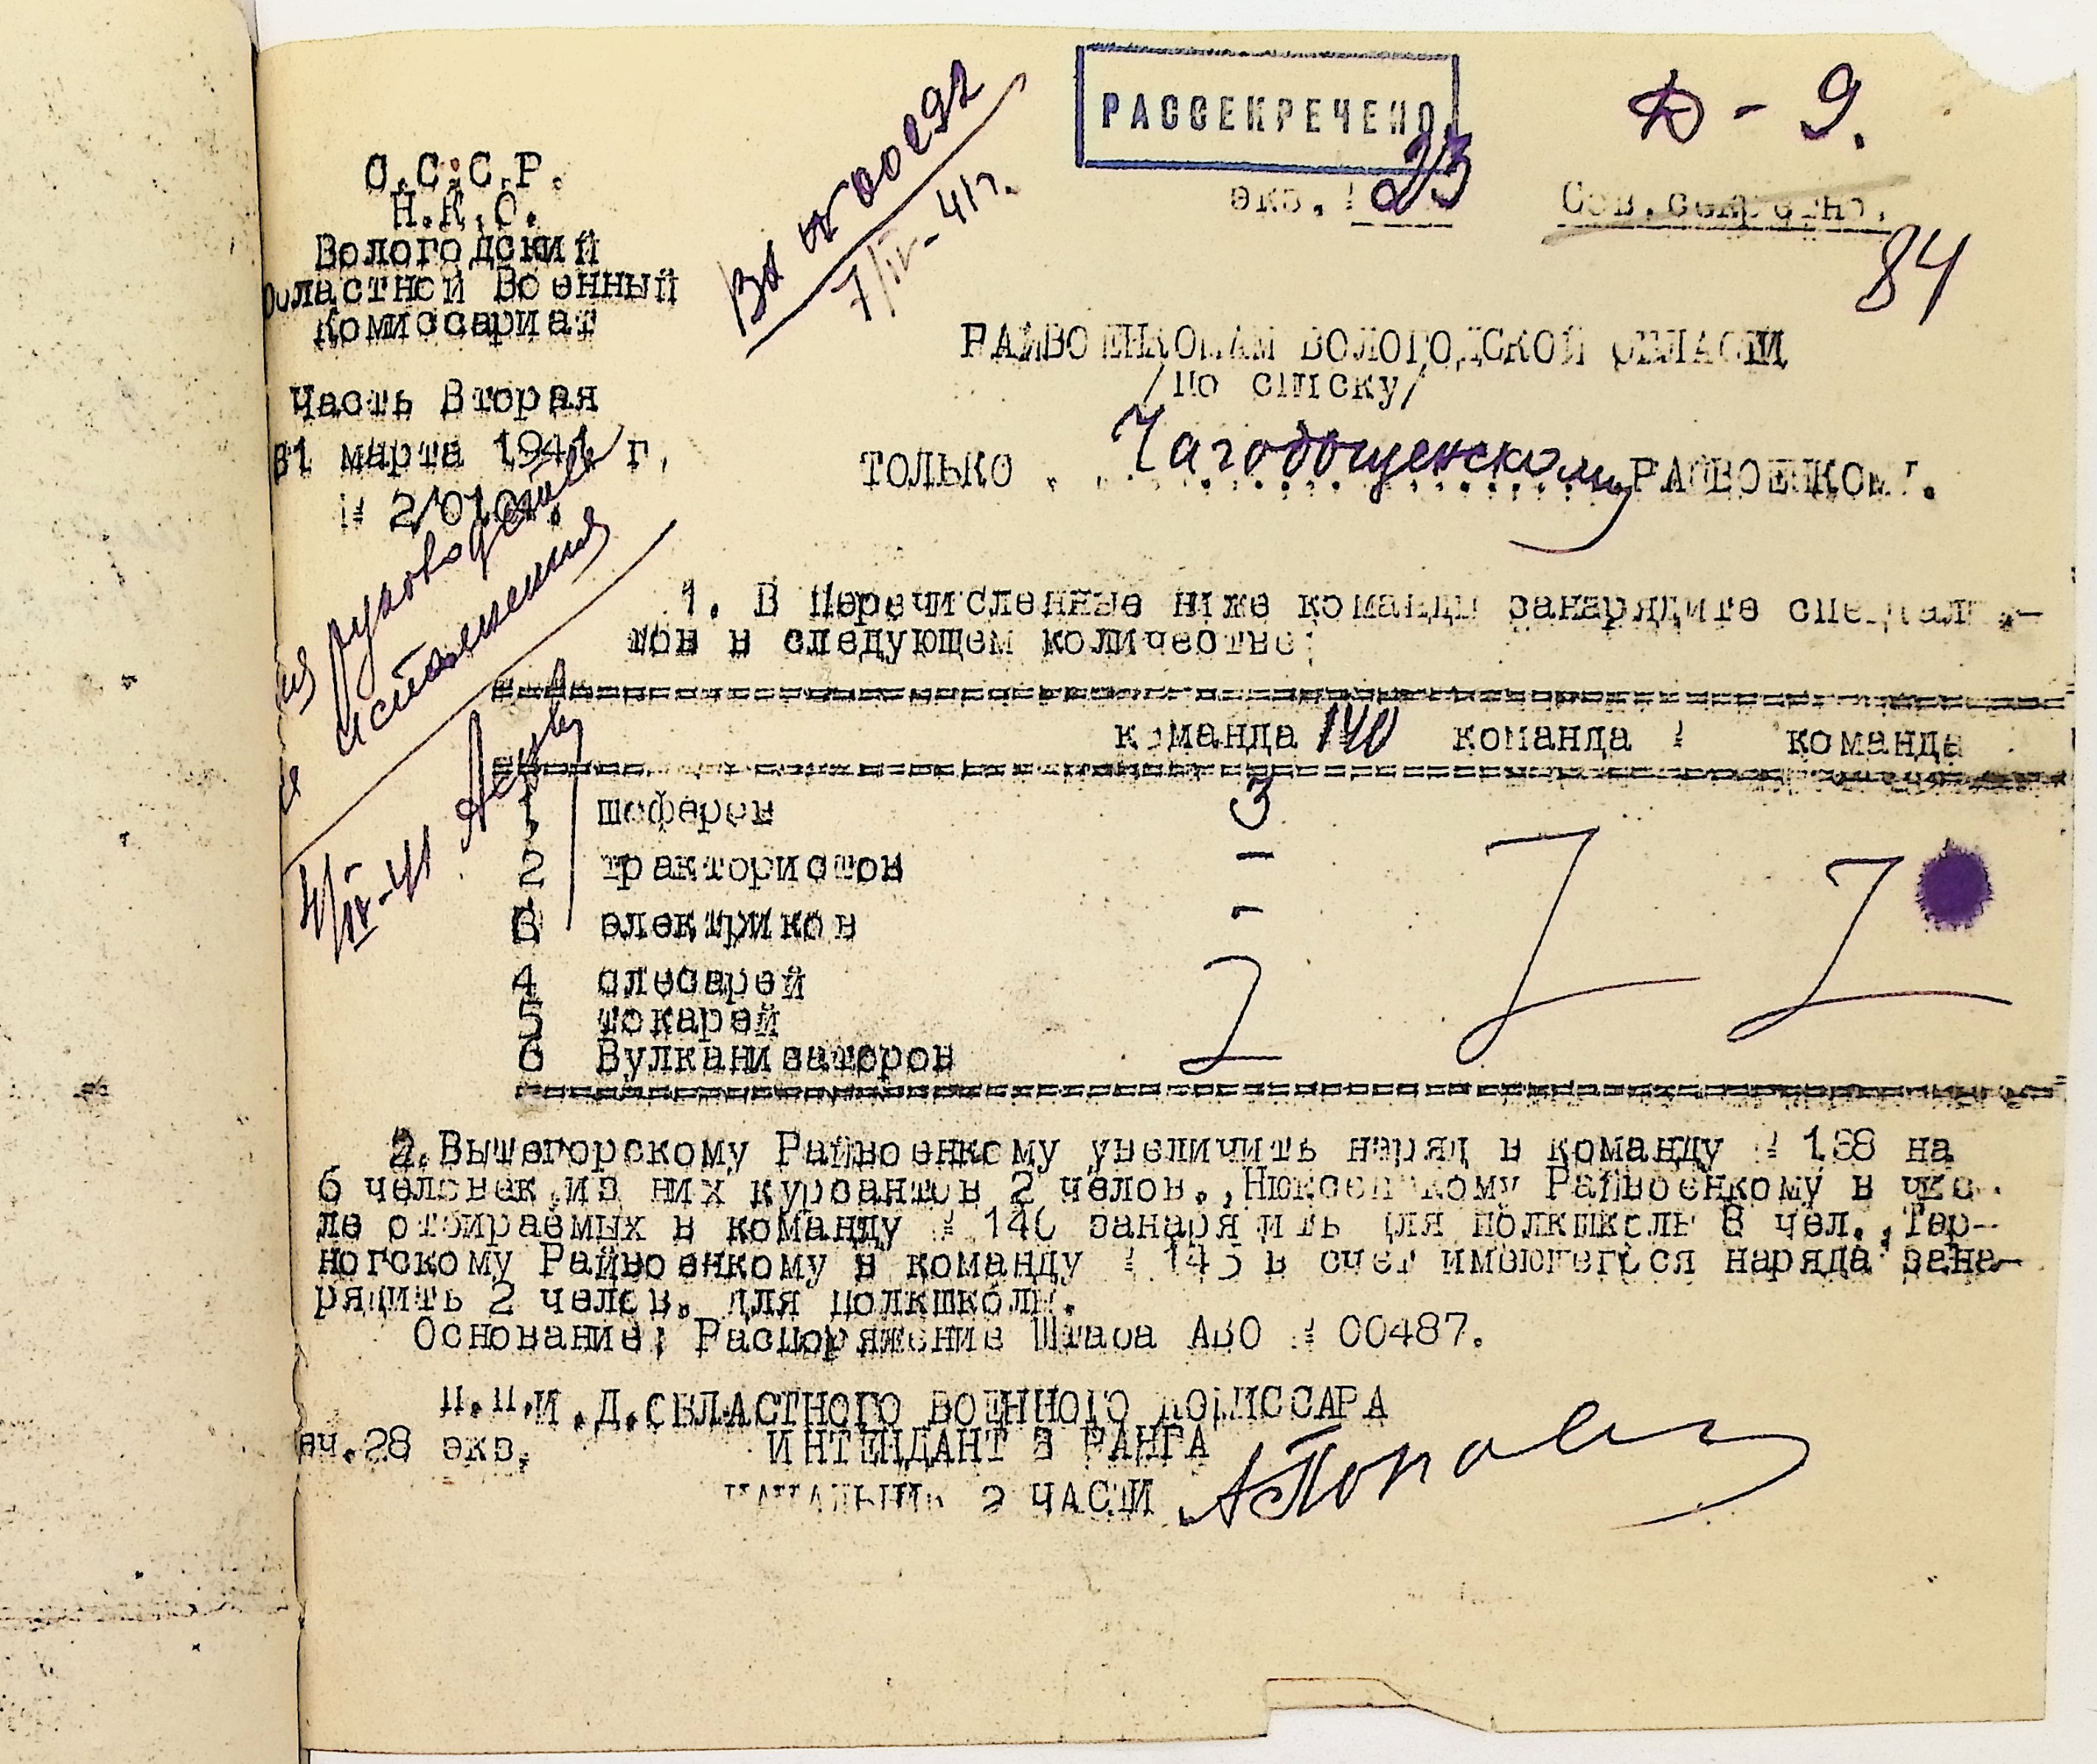 РАССЕКРЕЧЕНО
Д - 9.
экз. № 23
Сов. секретно.
84
Вх № 00892
7/IV-41г.
С.С.С.Р.
Н.К.О.
Вологодский
Областной Военный
Комиссариат
Часть Вторая
31 марта 1941 г.
№ 2/0101
РАЙВОЕНКОМАМ ВОЛОГОДСКОЙ ОБЛАСТИ
/по списку/
ТОЛЬКО Чагодощенскому РАЙВОЕНКОМУ.
руководства
и исполнения
4/IV-41
1. В перечисленные ниже команды занарядите специалис-
тов в следующем количестве:
команда 140 команда № команда
1 шоферов 3
2 трактористов -
3 электриков -
4 слесарей
5 токарей
6 Вулканизаторов
2. Вытегорскому Райвоенкому увеличить наряд в команду № 138 на
6 человек из них курсантов 2 челов., Нюксенскому Райвоенкому в чис-
ле отбираемых в команду № 140 занарядить для полкшколы 8 чел., Тар-
ногскому Райвоенкому в команду № 145 в счет имеющегося наряда зана-
рядить 2 челов. для полкшколы.
Основание: Распоряжение Штаба АВО № 00487.
п.п. И.Д. ОБЛАСТНОГО ВОЕННОГО КОМИССАРА
ИНТЕНДАНТ 3 РАНГА
еч. 28 экз.
НАЧАЛЬНИК 2 ЧАСТИ АПопов